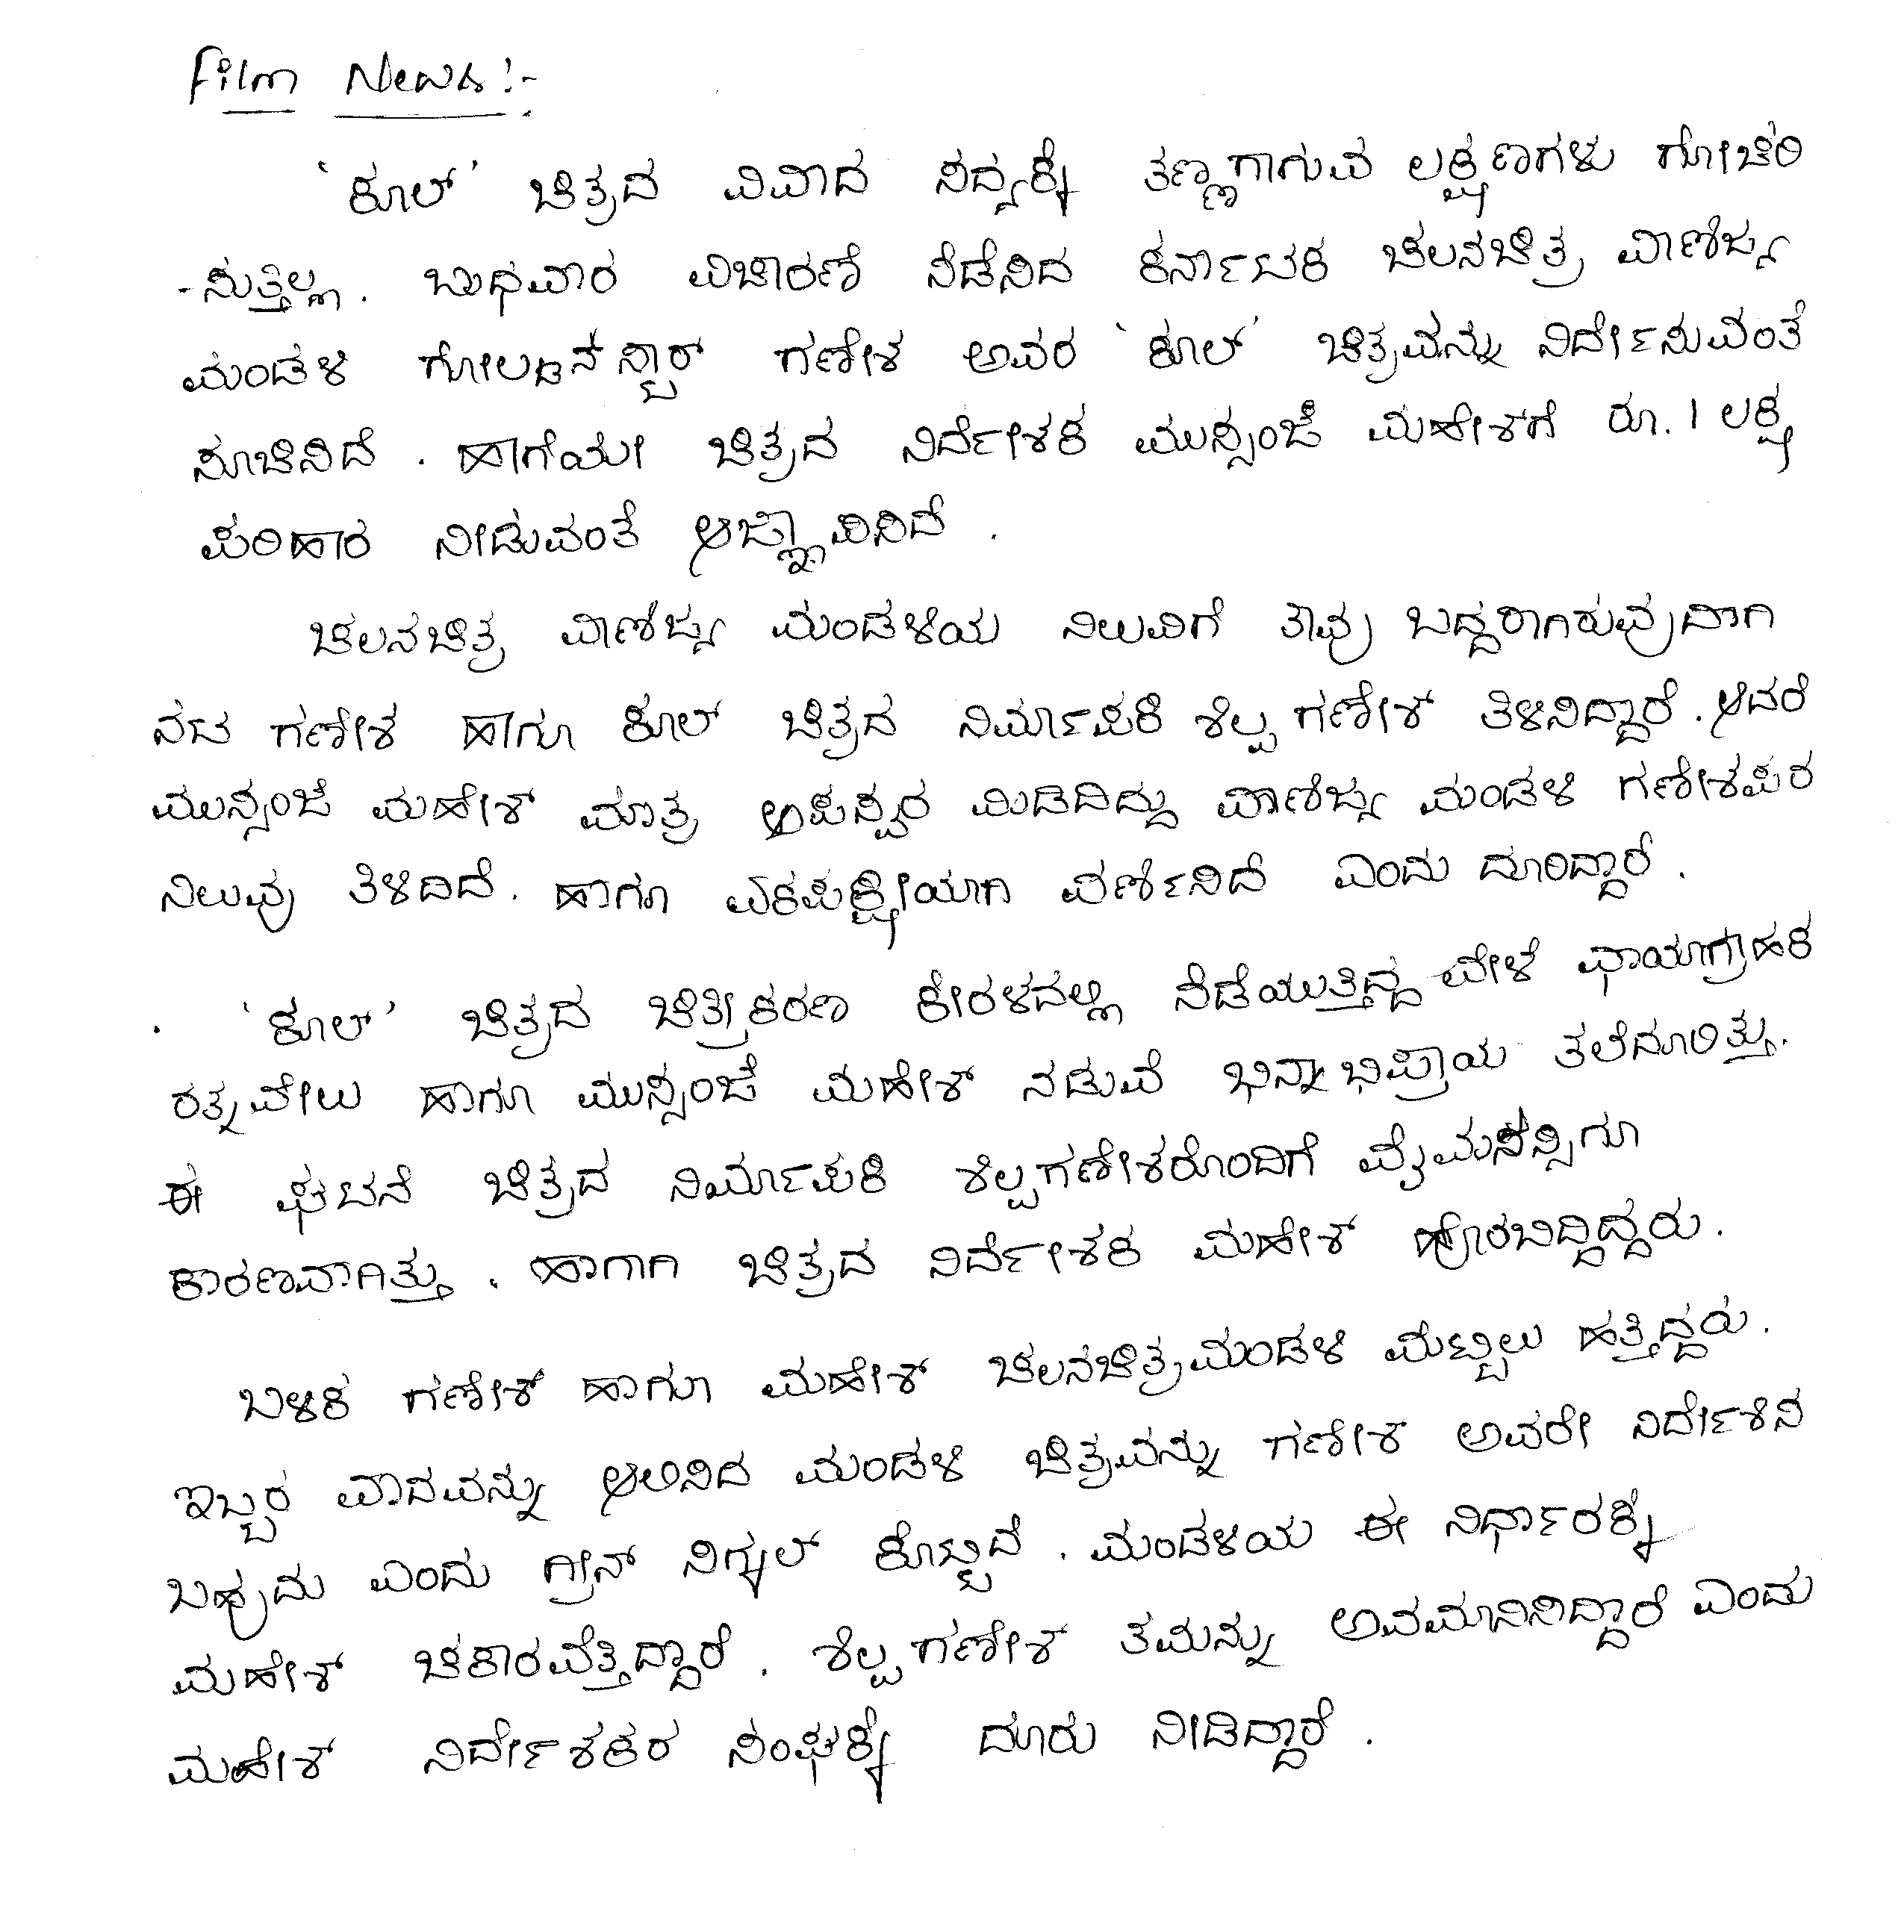 Film News:-
'ಕೂಲ್' ಚಿತ್ರದ ವಿವಾದ ಸದ್ಯಕ್ಕೆ ತಣ್ಣಗಾಗುವ ಲಕ್ಷಣಗಳು ಗೋಚರಿ
-ಸುತ್ತಿಲ್ಲ. ಬುಧವಾರ ವಿಚಾರಣೆ ನಡೆಸಿದ ಕರ್ನಾಟಕ ಚಲನಚಿತ್ರ ವಾಣಿಜ್ಯ
ಮಂಡಳಿ ಗೋಲಡನ್ ಸ್ಟಾರ್ ಗಣೇಶ ಅವರ 'ಕೂಲ್' ಚಿತ್ರವನ್ನು ನಿರ್ದೇಸುವಂತೆ
ಸೂಚಿಸಿದೆ. ಹಾಗೆಯೇ ಚಿತ್ರದ ನಿರ್ದೇಶಕ ಮುಸ್ಸಂಜೆ ಮಹೇಶ್‌ಗೆ ರೂ.1 ಲಕ್ಷ
ಪರಿಹಾರ ನೀಡುವಂತೆ ಆಜ್ಞಾಪಿಸಿದೆ.
ಚಲನಚಿತ್ರ ವಾಣಿಜ್ಯ ಮಂಡಳಿಯ ನಿಲುವಿಗೆ ತಾವು ಬದ್ದರಾಗಿರುವುದಾಗಿ
ನಟ ಗಣೇಶ ಹಾಗೂ ಕೂಲ್ ಚಿತ್ರದ ನಿರ್ಮಾಪಕಿ ಶಿಲ್ಪ ಗಣೇಶ್ ತಿಳಿಸಿದ್ದಾರೆ. ಆದರೆ
ಮುಸ್ಸಂಜೆ ಮಹೇಶ್ ಮಾತ್ರ ಅಪಸ್ವರ ಮಿಡಿದಿದ್ದು ವಾಣಿಜ್ಯ ಮಂಡಳಿ ಗಣೇಶಪರ
ನಿಲುವು ತಿಳಿದಿದೆ. ಹಾಗೂ ಏಕಪಕ್ಷೀಯಾಗಿ ವರ್ಣಿಸಿದೆ ಎಂದು ದೂರಿದ್ದಾರೆ.
. 'ಕೂಲ್' ಚಿತ್ರದ ಚಿತ್ರೀಕರಣ ಕೇರಳದಲ್ಲಿ ನಡೆಯುತ್ತಿದ್ದ ವೇಳೆ ಛಾಯಾಗ್ರಾಹಕ
ರತ್ನವೇಲು ಹಾಗೂ ಮುಸ್ಸಂಜೆ ಮಹೇಶ್ ನಡುವೆ ಭಿನ್ನಾಭಿಪ್ರಾಯ ತಲೆದೂರಿತ್ತು.
ಈ ಘಟನೆ ಚಿತ್ರದ ನಿರ್ಮಾಪಕಿ ಶಿಲ್ಪಗಣೇಶರೊಂದಿಗೆ ವೈಮನಸ್ಸಿಗೂ
ಕಾರಣವಾಗಿತ್ತು. ಹಾಗಾಗಿ ಚಿತ್ರದ ನಿರ್ದೇಶಕ ಮಹೇಶ್ ಹೊರಬಿದ್ದಿದ್ದರು.
ಬಳಿಕ ಗಣೇಶ್ ಹಾಗೂ ಮಹೇಶ್ ಚಲನಚಿತ್ರಮಂಡಳಿ ಮೆಟ್ಟಿಲು ಹತ್ತಿದ್ದರು.
ಇಬ್ಬರ ವಾದವನ್ನು ಆಲಿಸಿದ ಮಂಡಳಿ ಚಿತ್ರವನ್ನು ಗಣೇಶ್ ಅವರೇ ನಿರ್ದೇಶಿಸ
ಬಹುದು ಎಂದು ಗ್ರೀನ್ ಸಿಗ್ನಲ್ ಕೊಟ್ಟಿದೆ. ಮಂಡಳಿಯ ಈ ನಿರ್ಧಾರಕ್ಕೆ
ಮಹೇಶ್ ಚಕಾರವೆತ್ತಿದ್ದಾರೆ. ಶಿಲ್ಪ ಗಣೇಶ್ ತಮನ್ನು ಅವಮಾನಿಸಿದ್ದಾರೆ ಎಂದು
ಮಹೇಶ್ ನಿರ್ದೇಶಕರ ಸಂಘಕ್ಕೆ ದೂರು ನೀಡಿದ್ದಾರೆ.